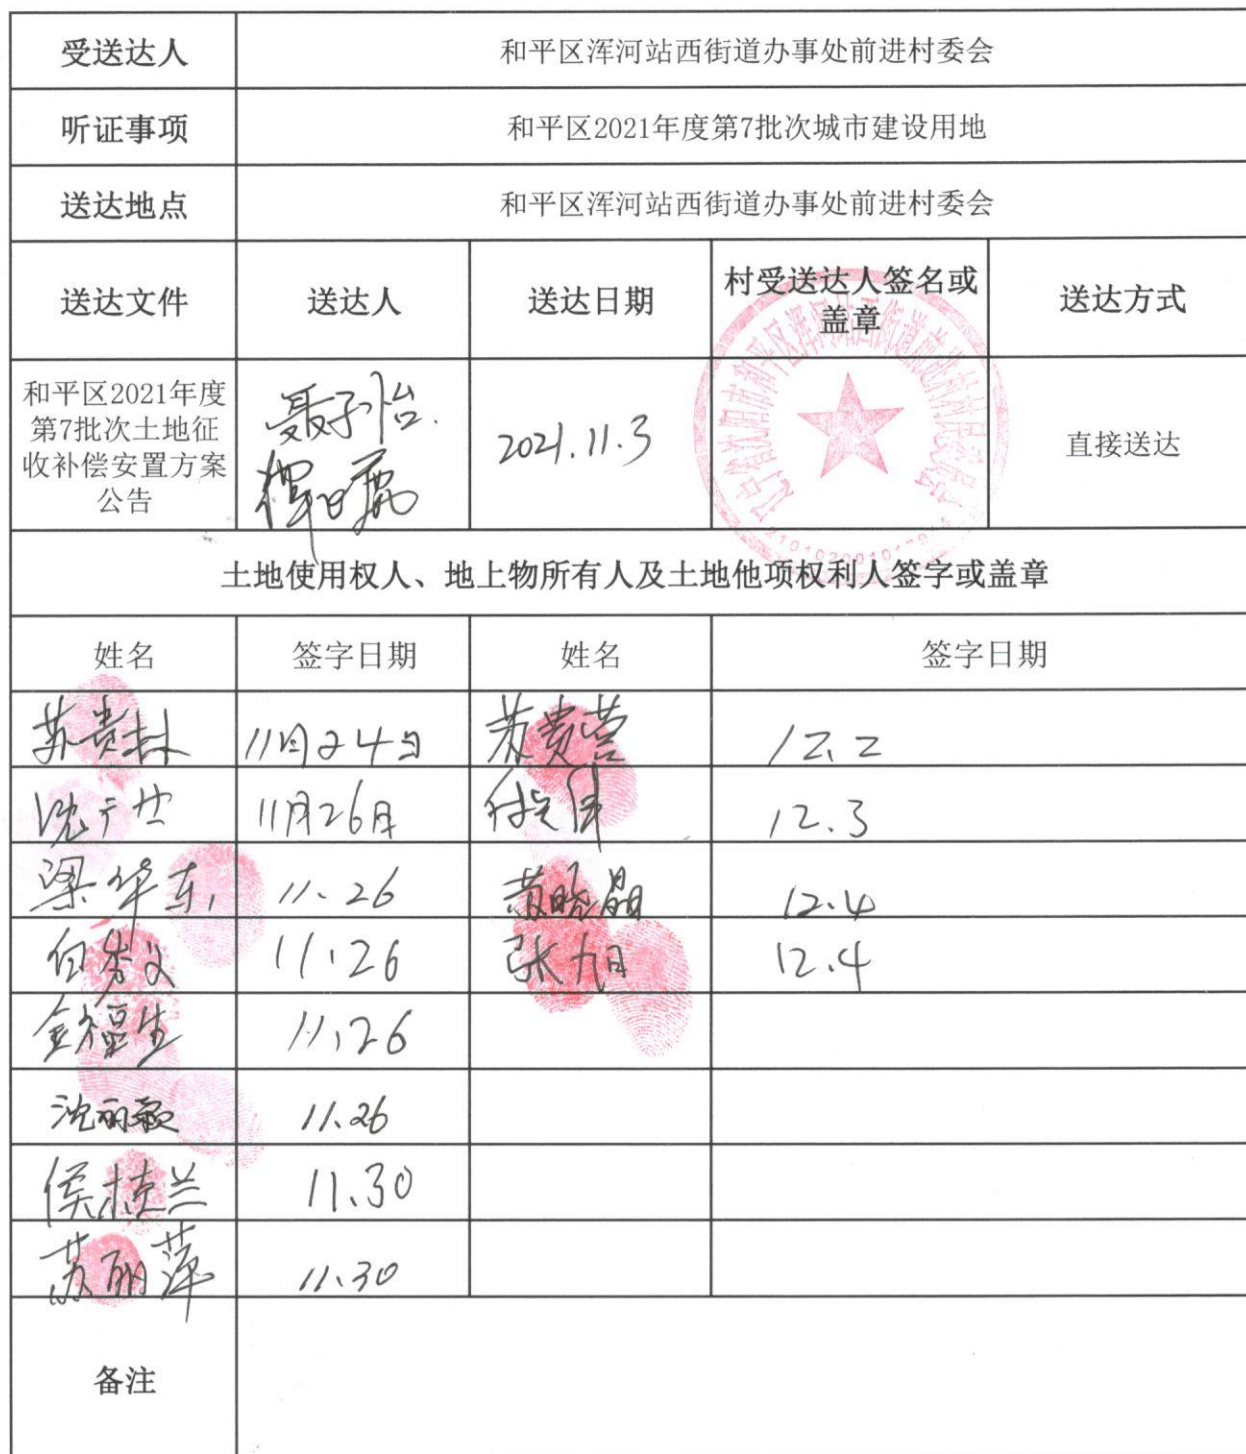 受送达人 和平区浑河站西街道办事处前进村委会
听证事项 和平区2021年度第7批次城市建设用地
送达地点 和平区浑河站西街道办事处前进村委会
送达文件 送达人 送达日期 村受送达人签名或盖章 送达方式
和平区2021年度
第7批次土地征
收补偿安置方案
公告
聂子怡.
2021.11.3
直接送达
土地使用权人、地上物所有人及土地他项权利人签字或盖章
姓名 签字日期 姓名 签字日期
苏贵林 11月24日 苏贵营 12.2
沈广廿 11月26日 12.3
梁华东 11.26 黄晓晶 12.4
白秀文 11.26 张旭 12.4
金福生 11.26
沈丽颖 11.26
侯桂兰 11.30
苏丽萍 11.30
备注